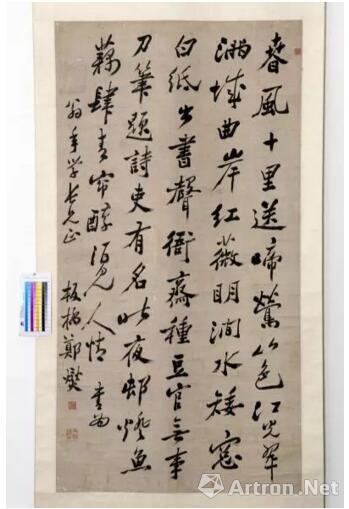 春風十里送啼鶯山色江光翠
滿城曲岸紅薇明澗水矮窓
白紙出書聲衙齋種豆官無事
刀筆題詩吏有名昨夜邨燈魚
藕肆青帘醇酒見人情 書為
翁年學長兄正 板橋鄭燮
Artron.Net